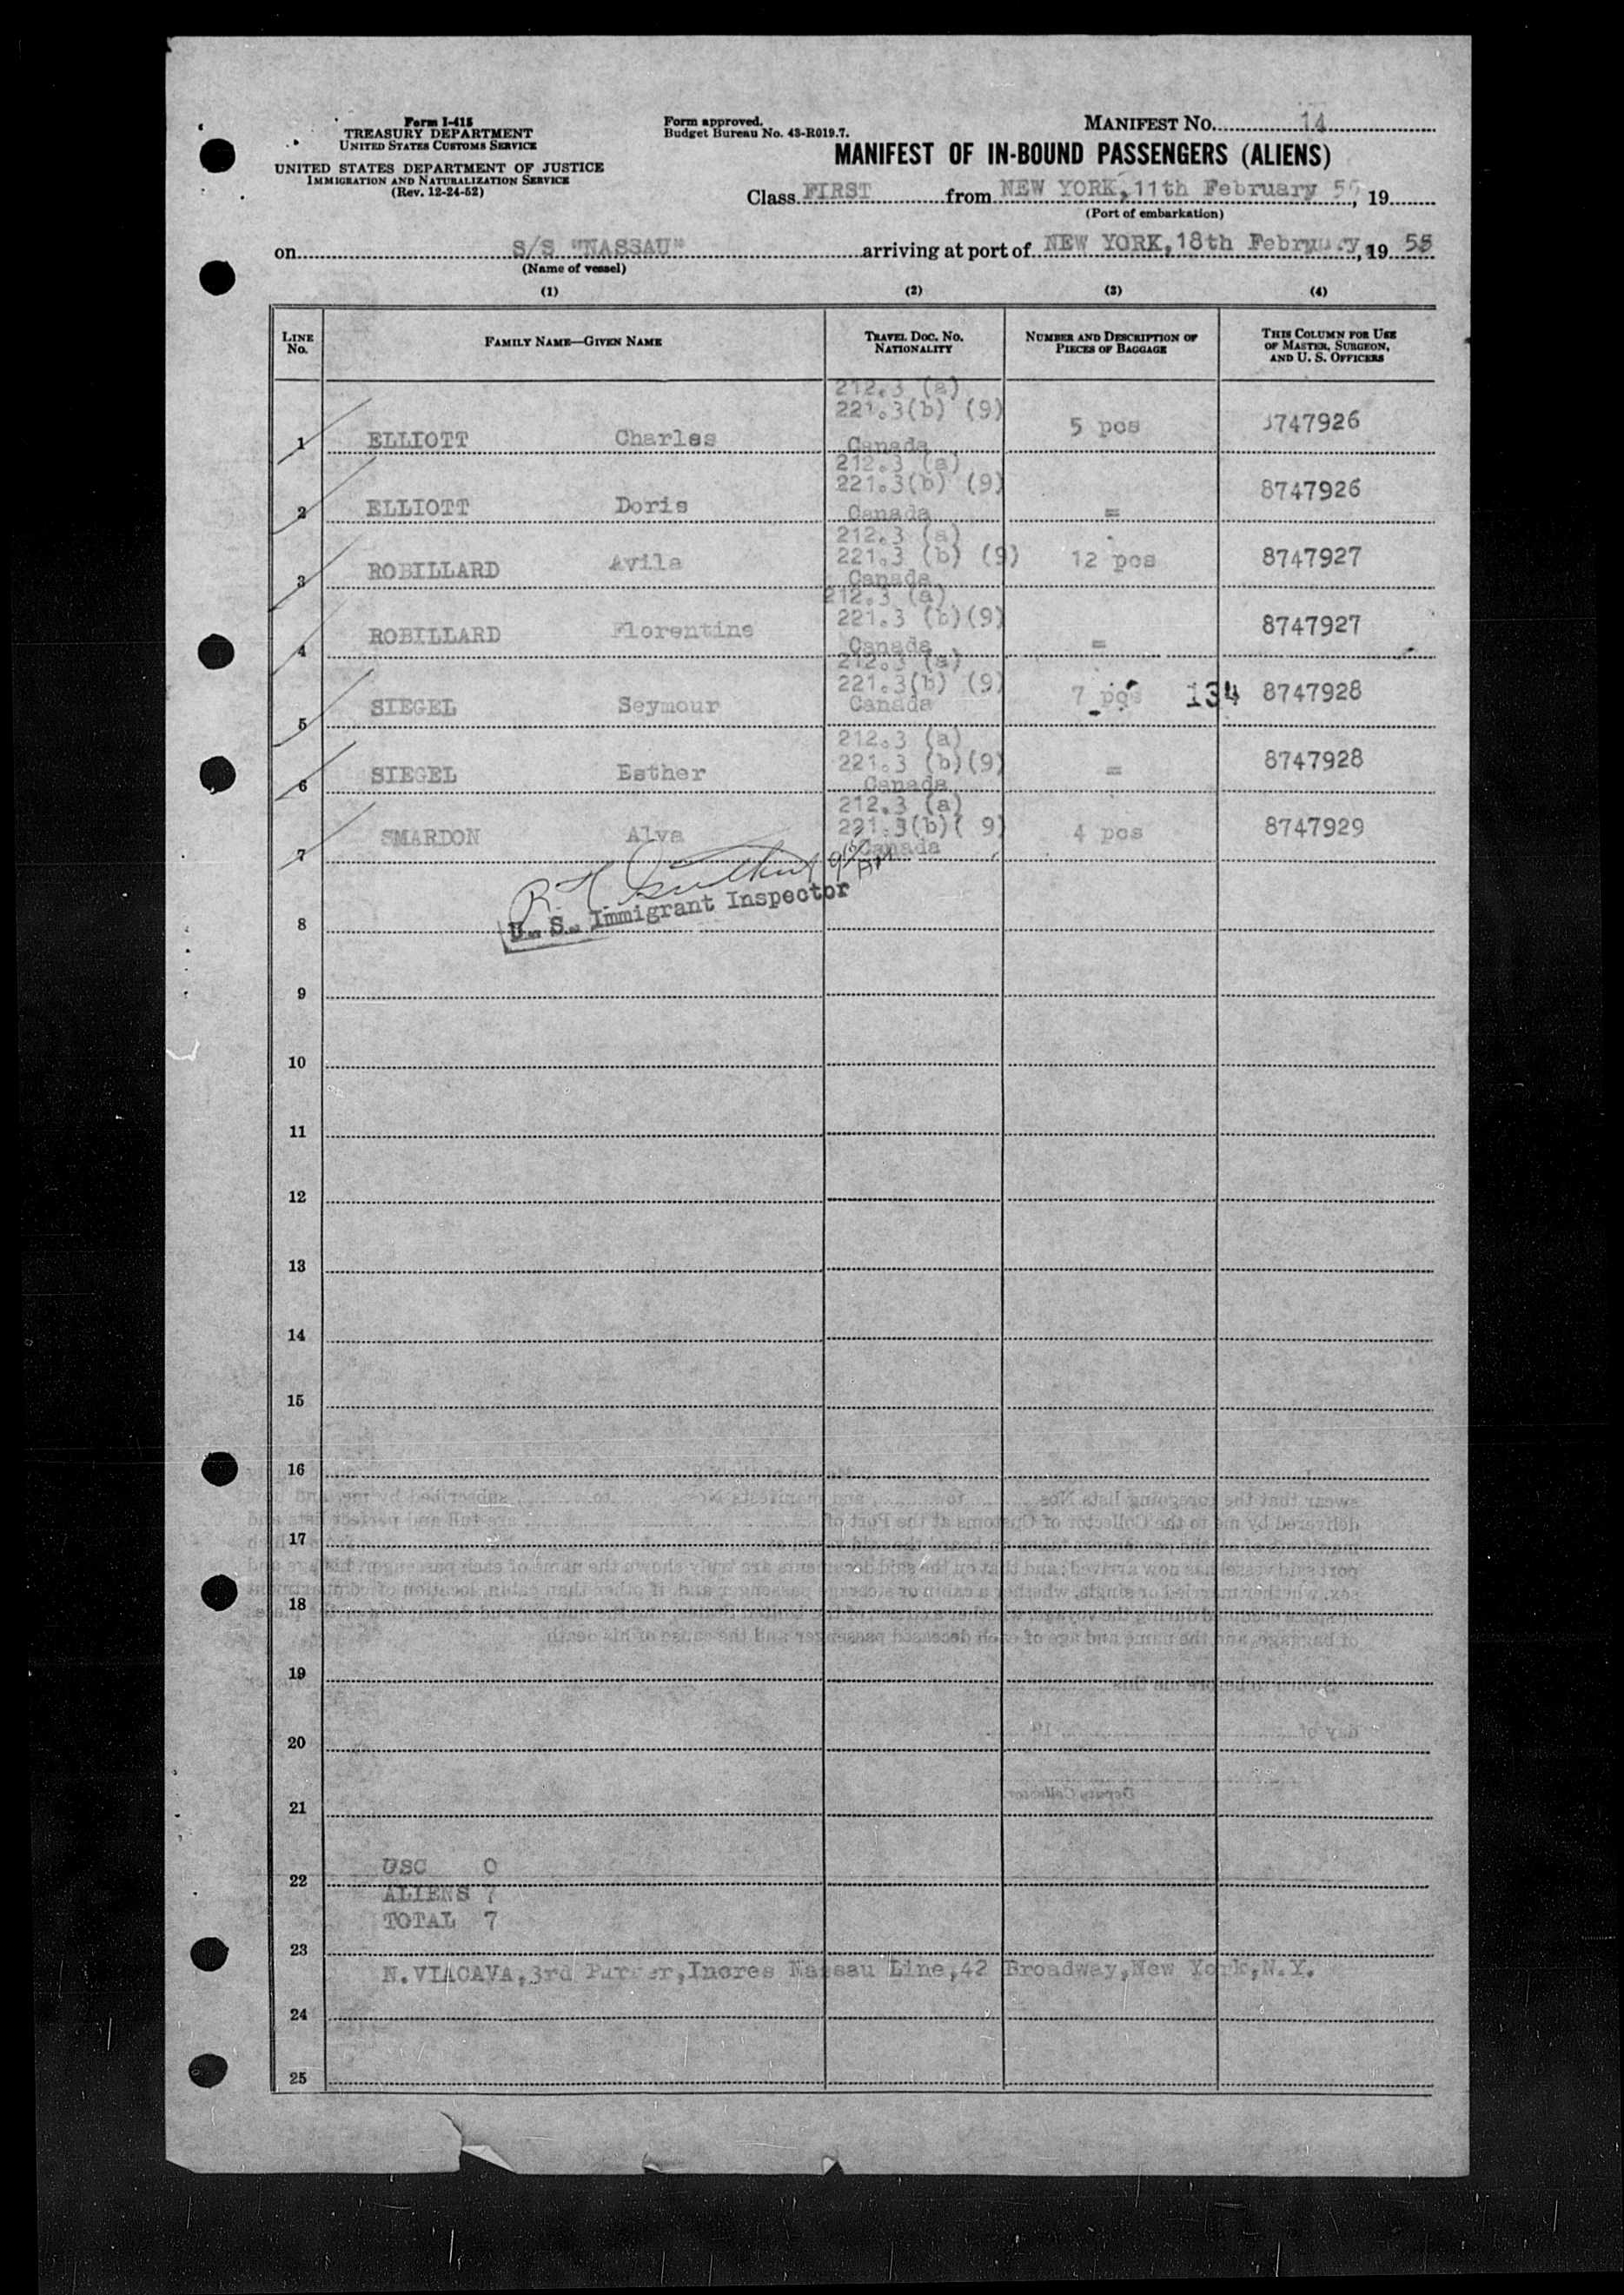 Form I-415
TREASURY DEPARTMENT
UNITED STATES CUSTOMS SERVICE
UNITED STATES DEPARTMENT OF JUSTICE
IMMIGRATION AND NATURALIZATION SERVICE
(Rev. 12-24-52)
Form approved.
Budget Bureau No. 43-R019.7.
MANIFEST NO. 14
MANIFEST OF IN-BOUND PASSENGERS (ALIENS)
Class FIRST from NEW YORK, 11th February 55, 19
(Port of embarkation)
on S/S "NASSAU" arriving at port of NEW YORK, 18th February, 19 55
(Name of vessel)
(1) (2) (3) (4)
LINE No. FAMILY NAME—GIVEN NAME TRAVEL DOC. NO. NATIONALITY NUMBER AND DESCRIPTION OF PIECES OF BAGGAGE THIS COLUMN FOR USE OF MASTER, SURGEON, AND U. S. OFFICERS
212.3 (a)
221.3(b) (9)
1 ELLIOTT Charles Canada 5 pcs 8747926
212.3 (a)
221.3(b) (9)
2 ELLIOTT Doris Canada = 8747926
212.3 (a)
221.3 (b) (9)
3 ROBILLARD Avila Canada 12 pcs 8747927
212.3 (a)
221.3 (b)(9)
4 ROBILLARD Florentine Canada = 8747927
212.3 (a)
221.3(b) (9)
5 SIEGEL Seymour Canada 7 pcs 134 8747928
212.3 (a)
221.3 (b)(9)
6 SIEGEL Esther Canada = 8747928
212.3 (a)
221.3(b)( 9)
7 SMARDON Alva Canada 4 pcs 8747929
R. H.
U. S. Immigrant Inspector
8
9
10
11
12
13
14
15
16
17
18
19
20
21
USC 0
22
ALIENS 7
TOTAL 7
23
N.VIACAVA,3rd Purser,Incres Nassau Line,42 Broadway,New York,N.Y.
24
25